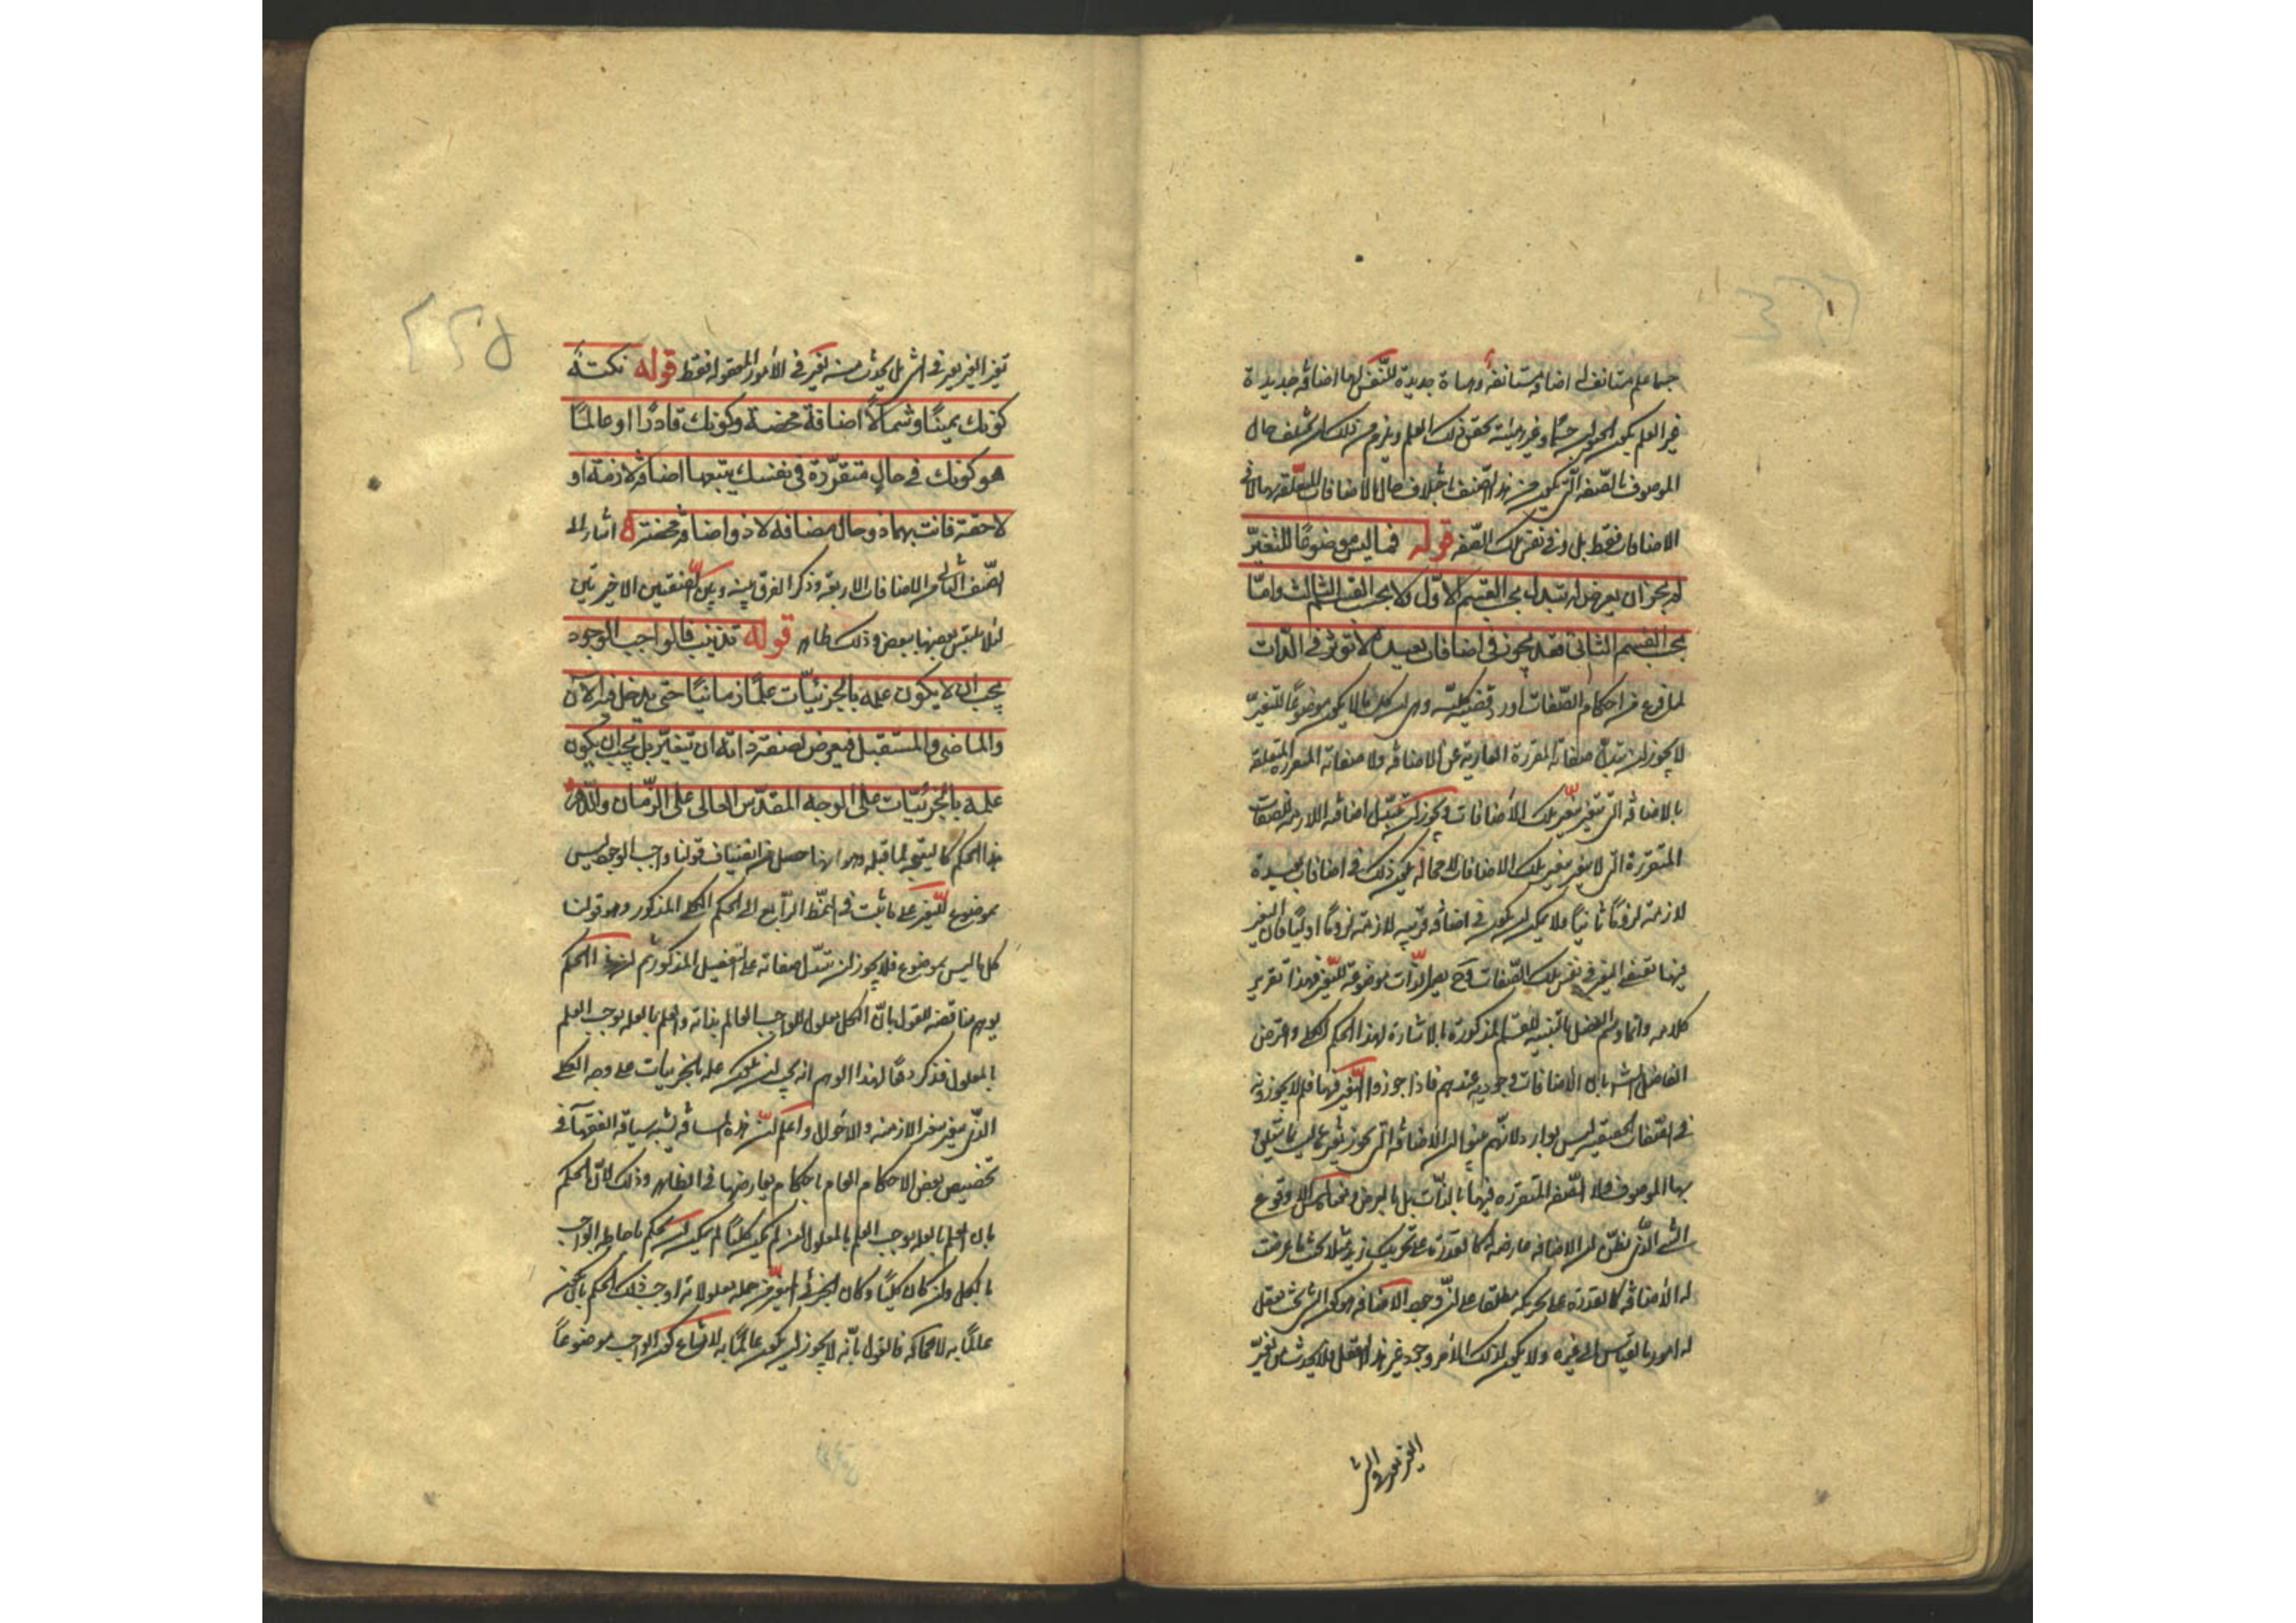 جسما علم مستأنف له اضافة مستأنفة وهيأة جديدة للنفس لها اضافة جديدة
غير العلم بكون الحيوان جسما وغير هيئة تحقق ذلك العلم ويلزم من ذلك ان يختلف حال
الموصوف بالصفة التي تكون من هذا الصنف باختلاف حال الاضافات المتعلقة بها لا في
الاضافات فقط بل وفى نفس تلك الصفة قوله فما ليس موضوعًا للتغيّر
لم يجز ان يعرض له تبدل بحسب القسم الاوّل ولا بحسب القسم الثالث وامّا
بحسب القسم الثانى فقد يجوز فى اضافات بعيدة لا تؤثر فى الذات
لما فرغ من احكام الصّفات اورد قضية كلية وهى ان كل ما لا يكون موضوعًا للتغيّر
لا يجوز ان تتبدل صفاته المقررة العارية عن الاضافة ولا صفاته المتقررة المتعلقة
بالاضافة التى تتغير بتغير تلك الاضافات ويجوز ان تتبدل اضافته اللازمة لصفات
المتقررة التى لا تتغير بتغير تلك الاضافات لا محالة يكون ذلك فى اضافات بعيدة
لازمة لزومًا ثانيًا ولا يمكن ان يكون فى اضافة قريبة لازمة لزومًا اوليًا فان التغير
فيها تقتضى التغير فى نفس تلك الصّفات وح يصير الذّات موضوعة للتغير فهذا تقرير
كلامه وانما وسم الفصل بالتنبيه للقسم المذكورة بالاشارة لهذا الحكم الكلى واعترض
الفاضل الش بان الاضافات وجودية عندهم فاذا جوزوا التغير فيها فلم لا يجوزونه
فى الصّفات الحقيقية ليس بوارد لانهم بينوا ان الاضافة التى يجوز تغيرها ليست مما يتعلق
بها الموصوف ولا الصّفة المتقررة فيها بالذات بل بالعرض ومعناه امكان وقوع
الشئ الذى نظن ان الاضافة عارضة له كالقدرة على تحريك زيد مثلا تحت ما عرضت
له الاضافة كالقدرة على تحريكه مطلقا على ان وجود الاضافة هو كون الشئ بحيث يعقل
له امور بالقياس الى غيره ولا يكون لذلك الامر وجود غير هذا التعقل فلا يحدث من تغيّر
الغير تغير فى الش
تغيّر الغير تغير فى الش بل يحدث منه تغير فى الأمور المعقولة فقط قوله نكتة
كونك يمينًا وشمالًا اضافة محضة وكونك قادرًا او عالمًا
هو كونك فى حالٍ متقرّرة فى نفسك يتبعها اضافة لازمة او
لاحقة فانت بهما ذو حال مضافه لا ذو اضافة محضة اشار الى
الصّنف الثانى من الاضافات الاربعة وذكر الفرق بينه وبين الصنفين الاخيرين
لئلا يلتبس بعضها ببعض وذلك ظاهر قوله تذنيب فالواجب الوجود
يجب ان لا يكون علمه بالجزئيّات علمًا زمانيًا حتى يدخل فيه الآن
والماضى والمستقبل فيعرض لصفة ذاته ان تتغيّر بل يجب ان يكون
علمه بالجزئيّات على الوجه المقدّس العالى على الزّمان والدّهر
هذا الحكم كالنتيجة لما قبله وهو انما حصل من انضياف قولنا واجب الوجود ليس
بموضوع للتغير على ما ثبت فى النمط الرّابع الى الحكم الكلى المذكور وهو قولنا
كل ما ليس بموضوع فلا يجوز ان تتبدّل صفاته على التفصيل المذكور ثم ان هذا الحكم
يوهم مناقضة للقول بانّ الكل معلول للواجب العالم بذاته والعلم بالعلة يوجب العلم
بالمعلول فذكر دفعًا لهذا الوهم انه يجب ان يكون علمه بالجزئيات على وجه الكلى
الذى لا يتغير بتغير الازمنة والاحوال واعلم انّ هذه السياقة يشبه سياقة الفقهاء فى
تخصيص بعض الاحكام العامة باحكام يعارضها فى الظاهر وذلك لانّ الحكم
بان العلم بالعلة يوجب العلم بالمعلول ان لم يكن كليًا لم يمكن ان يحكم باحاطة الواجب
بالكل وان كان كليًا وكان الجزئى المتغير من جملة معلولاته اوجب ذلك الحكم بان يكون
عالمًا به لا محالة فالقول بأنه لا يجوز ان يكون عالمًا به لامتناع كون الواجب موضوعًا